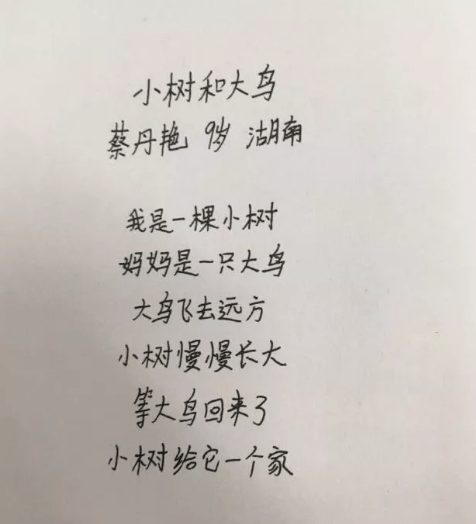 小树和大鸟
蔡丹艳 9岁 湖南
我是一棵小树
妈妈是一只大鸟
大鸟飞去远方
小树慢慢长大
等大鸟回来了
小树给它一个家